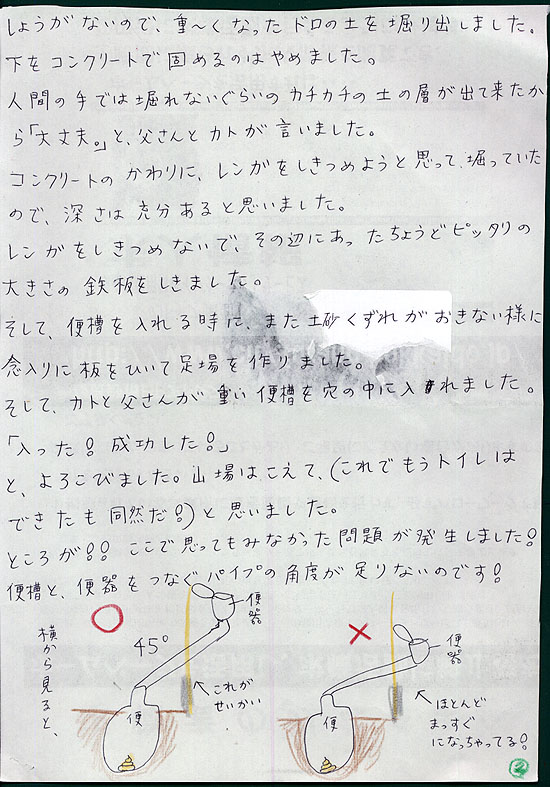 しょうがないので、重〜くなったドロの土を堀り出しました。
下をコンクリートで固めるのはやめました。
人間の手では堀れないぐらいのカチカチの土の層が出て来たか
ら「大丈夫。」と、父さんとカトが言いました。
コンクリートのかわりに、レンガをしきつめようと思って、堀っていた
ので、深さは充分あると思いました。
レンガをしきつめないで、その辺にあったちょうどピッタリの
大きさの鉄板をしきました。
そして、便槽を入れる時に、また土砂くずれがおきない様に
念入りに板をひいて足場を作りました。
そして、カトと父さんが重い便槽を穴の中に入れました。
「入った!成功した!」
と、よろこびました。山場はこえて、(これでもうトイレは
できたも同然だ!)と思いました。
ところが!!ここで思ってもみなかった問題が発生しました!
便槽と、便器をつなぐパイプの角度が足りないのです!
横から見ると、
45°
便器
これが
せいかい
便
便器
ほとんど
まっすぐ
になっちゃってる!
便
2